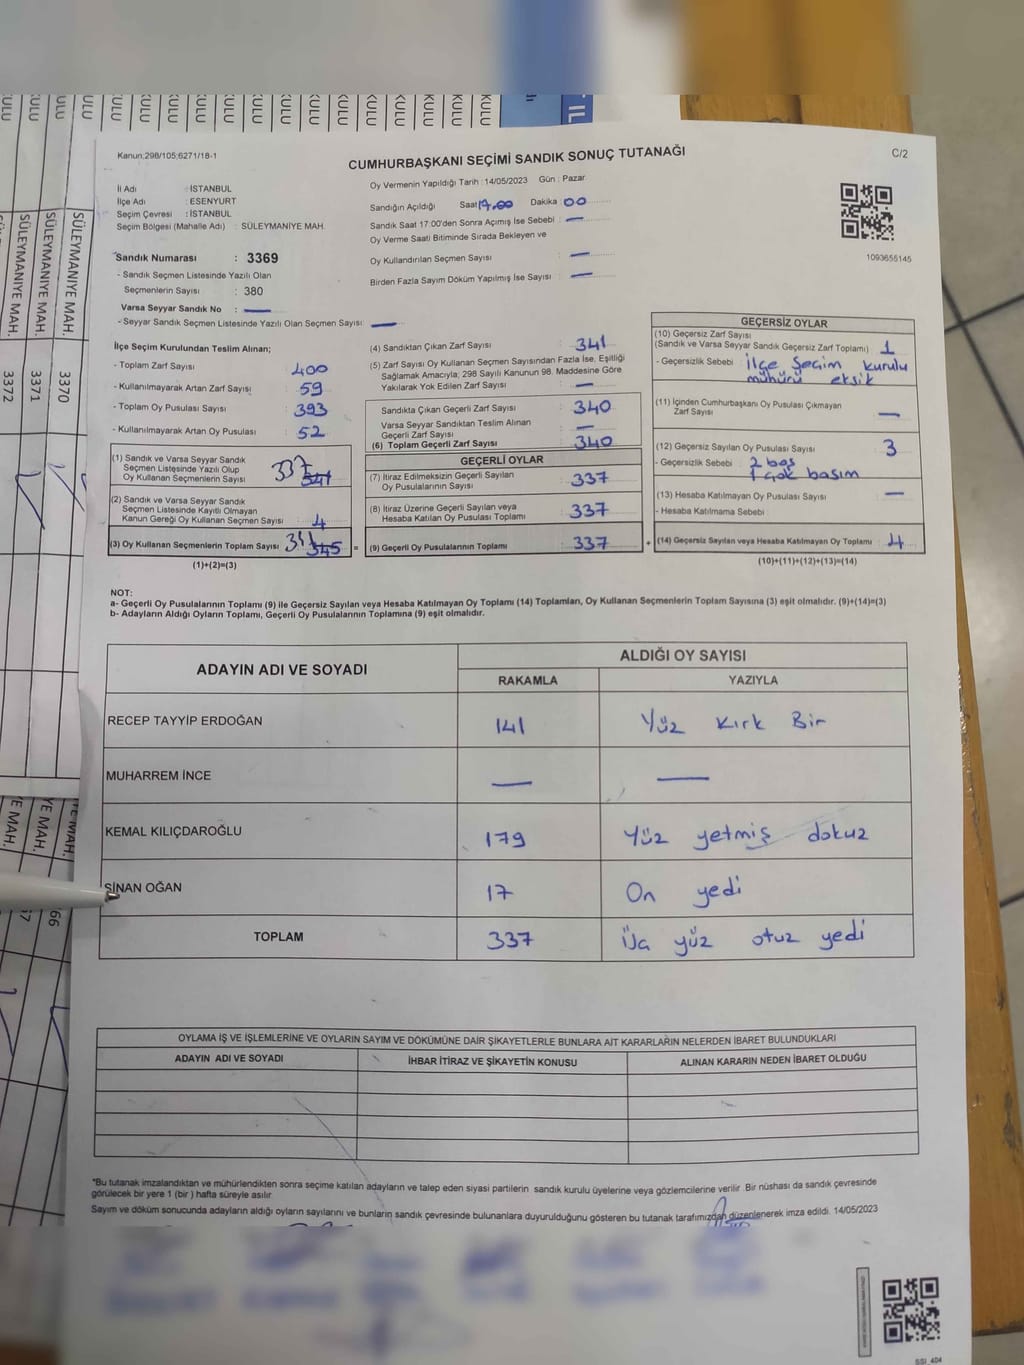 KULU KULU KULU KULU KULU KULU KULU KULU KULU KULU KULU KULU KULU
SÜLEYMANIYE MAH.
SÜLEYMANIYE MAH.
SÜLEYMANIYE MAH.
3372
3371
3370
Kanun;298/105;6271/18-1
CUMHURBAŞKANI SEÇİMİ SANDIK SONUÇ TUTANAĞI
C/2
İl Adı : İSTANBUL
İlçe Adı : ESENYURT
Seçim Çevresi : İSTANBUL
Seçim Bölgesi (Mahalle Adı) : SÜLEYMANIYE MAH.
Sandık Numarası : 3369
- Sandık Seçmen Listesinde Yazılı Olan
Seçmenlerin Sayısı : 380
Varsa Seyyar Sandık No : —
- Seyyar Sandık Seçmen Listesinde Yazılı Olan Seçmen Sayısı: —
Oy Vermenin Yapıldığı Tarih : 14/05/2023 Gün : Pazar
Sandığın Açıldığı Saat 17.00 Dakika 00
Sandık Saat 17:00'den Sonra Açımış İse Sebebi : —
Oy Verme Saati Bitiminde Sırada Bekleyen ve
Oy Kullandırılan Seçmen Sayısı : —
Birden Fazla Sayım Döküm Yapılmış İse Sayısı : —
1093655145
İlçe Seçim Kurulundan Teslim Alınan;
- Toplam Zarf Sayısı : 400
- Kullanılmayarak Artan Zarf Sayısı : 59
- Toplam Oy Pusulası Sayısı : 393
- Kullanılmayarak Artan Oy Pusulası : 52
(1) Sandık ve Varsa Seyyar Sandık
Seçmen Listesinde Yazılı Olup
Oy Kullanan Seçmenlerin Sayısı : 337 341
(2) Sandık ve Varsa Seyyar Sandık
Seçmen Listesinde Kayıtlı Olmayan
Kanun Gereği Oy Kullanan Seçmen Sayısı : 4
(3) Oy Kullanan Seçmenlerin Toplam Sayısı : 341 345 =
(1)+(2)=(3)
(4) Sandıktan Çıkan Zarf Sayısı : 341
(5) Zarf Sayısı Oy Kullanan Seçmen Sayısından Fazla İse, Eşitliği
Sağlamak Amacıyla; 298 Sayılı Kanunun 98. Maddesine Göre
Yakılarak Yok Edilen Zarf Sayısı : —
Sandıkta Çıkan Geçerli Zarf Sayısı : 340
Varsa Seyyar Sandıktan Teslim Alınan
Geçerli Zarf Sayısı : —
(6) Toplam Geçerli Zarf Sayısı : 340
GEÇERLİ OYLAR
(7) İtiraz Edilmeksizin Geçerli Sayılan
Oy Pusulalarının Sayısı : 337
(8) İtiraz Üzerine Geçerli Sayılan veya
Hesaba Katılan Oy Pusulası Toplamı : 337
(9) Geçerli Oy Pusulalarının Toplamı : 337 +
GEÇERSİZ OYLAR
(10) Geçersiz Zarf Sayısı
(Sandık ve Varsa Seyyar Sandık Geçersiz Zarf Toplamı) : 1
- Geçersizlik Sebebi : İlçe Seçim kurulu
mühürü eksik
(11) İçinden Cumhurbaşkanı Oy Pusulası Çıkmayan
Zarf Sayısı : —
(12) Geçersiz Sayılan Oy Pusulası Sayısı : 3
- Geçersizlik Sebebi : 2 boş
1 çok basım
(13) Hesaba Katılmayan Oy Pusulası Sayısı : —
- Hesaba Katılmama Sebebi :
(14) Geçersiz Sayılan veya Hesaba Katılmayan Oy Toplamı : 4
(10)+(11)+(12)+(13)=(14)
NOT:
a- Geçerli Oy Pusulalarının Toplamı (9) ile Geçersiz Sayılan veya Hesaba Katılmayan Oy Toplamı (14) Toplamları, Oy Kullanan Seçmenlerin Toplam Sayısına (3) eşit olmalıdır. (9)+(14)=(3)
b- Adayların Aldığı Oyların Toplamı, Geçerli Oy Pusulalarının Toplamına (9) eşit olmalıdır.
ADAYIN ADI VE SOYADI
ALDIĞI OY SAYISI
RAKAMLA YAZIYLA
RECEP TAYYİP ERDOĞAN 141 Yüz Kırk Bir
MUHARREM İNCE — —
KEMAL KILIÇDAROĞLU 179 Yüz yetmiş dokuz
SİNAN OĞAN 17 On yedi
TOPLAM 337 Üç yüz otuz yedi
OYLAMA İŞ VE İŞLEMLERİNE VE OYLARIN SAYIM VE DÖKÜMÜNE DAİR ŞİKAYETLERLE BUNLARA AİT KARARLARIN NELERDEN İBARET BULUNDUKLARI
ADAYIN ADI VE SOYADI İHBAR İTİRAZ VE ŞİKAYETİN KONUSU ALINAN KARARIN NEDEN İBARET OLDUĞU
*Bu tutanak imzalandıktan ve mühürlendikten sonra seçime katılan adayların ve talep eden siyasi partilerin sandık kurulu üyelerine veya gözlemcilerine verilir. Bir nüshası da sandık çevresinde
görülecek bir yere 1 (bir) hafta süreyle asılır.
Sayım ve döküm sonucunda adayların aldığı oyların sayılarını ve bunların sandık çevresinde bulunanlara duyurulduğunu gösteren bu tutanak tarafımızdan düzenlenerek imza edildi. 14/05/2023